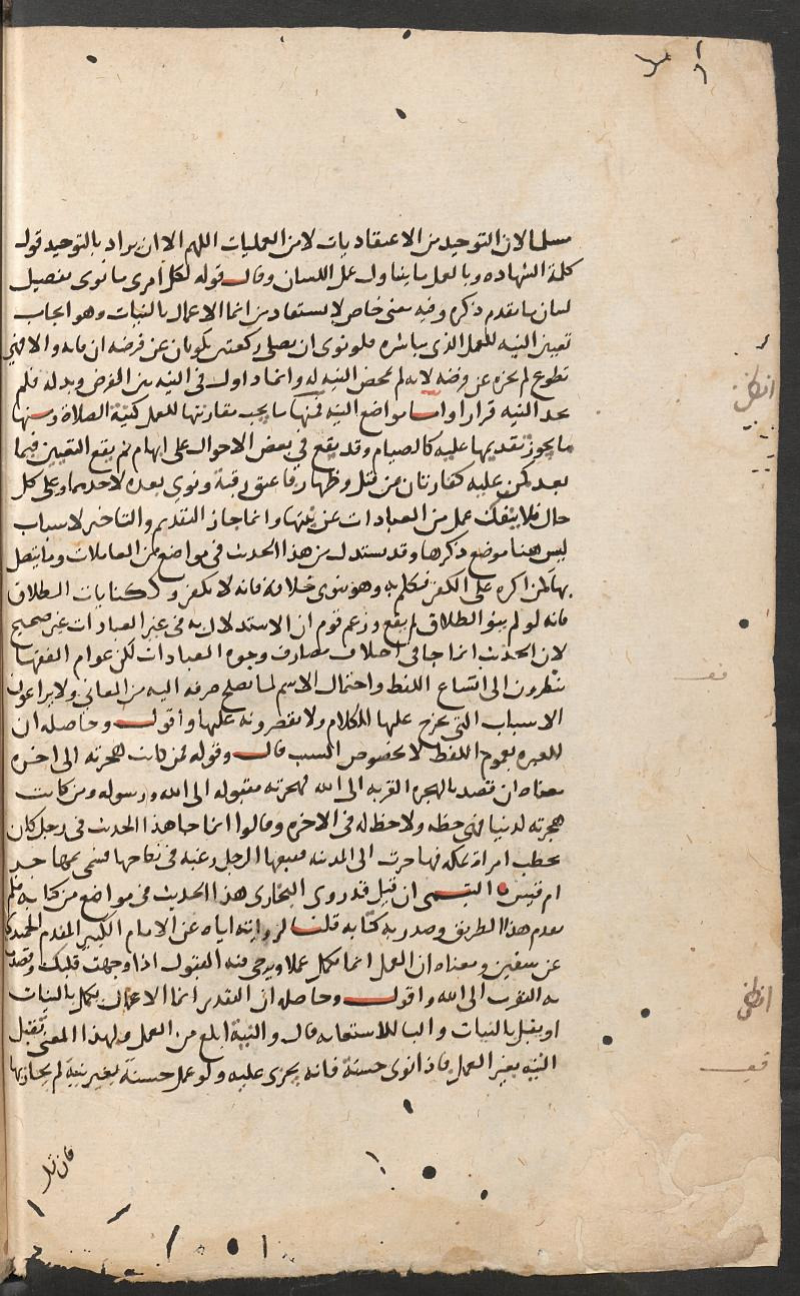 مسلما لان التوحيد من الاعتقاديات لا من العمليات اللهم الا ان يراد بالتوحيد قول
كلمة الشهاده وبالعمل ما يتناول عمل اللسان وقال قوله لكل امرى ما نوى تفصيل
لبيان ما تقدم ذكره وفيه معنى خاص لا يستفاد من انما الاعمال بالنيات وهو ايجاب
تعيين النيه للعمل الذى يباشره فلو نوى ان يصلى ركعتين يكونان عن فرضه ان فاته والا فهى
تطوع لم يجزه عن فرضه لانه لم يمحض النيه له وانما داول فى النيه بين الفرض وبدله فلم
يجد النيه قرارا واما مواضع النيه فمنها ما يجب مقارنتها للعمل كنية الصلاة ومنها
ما يجوز تقديمها عليه كالصيام وقد يقع في بعض الاحوال على ابهام ثم يقع التعيين فيما
بعد كمن عليه كفارتان من قتل وظهار فاعتق رقبة ونوى بعده لاحدهما وعلى كل
حال فلا ينفك عمل من العبادات عن نيتها وانما جاز التقديم والتاخير لاسباب
ليس هنا موضع ذكرها وقد يستدل من هذا الحديث فى مواضع من المعاملات وما يتصل
بها كمن اكره على الكفر فتكلم به وهو ينوى خلافه فانه لا يكفر و كنايات الطلاق
فانه لو لم ينو الطلاق لم يقع وزعم قوم ان الاستدلال به فى غير العبادات غير صحيح
لان الحديث انما جا فى اختلاف مصارف وجوه العبادات لكن عوام الفقها
ينظرون الى اتساع اللفظ واحتمال الاسم لما يصلح صرفه اليه من المعانى ولا يراعون
الاسباب التى يخرج عليها الكلام ولا يقصرونه عليها واقول وحاصله ان
العبره بعموم اللفظ لا بخصوص السبب قال وقوله فمن كانت هجرته الى اخره
معناه ان قصد بالهجره القربه الى الله فهجرته مقبوله الى الله ورسوله ومن كانت
هجرته لدنيا فهى حظه ولا حظ له فى الاخره وقالوا انما جا هذا الحديث فى رجل كان
يخطب امراة بمكه فهاجرت الى المدينه فتبعها الرجل رغبة فى نكاحها فسمى مهاجر
ام قيس التيمى ان قيل قد روى البخارى هذا الحديث فى مواضع من كتابه فلم
قدم هذا الطريق وصدر به كتابه قلنا لروايته اياه عن الامام الكبير المقدم الحميدى
عن سفين ومعناه ان العمل انما يكمل عملا ويرجى فيه القبول اذا وجهت قلبك وقصدت
به التقرب الى الله واقول وحاصله ان التقدير انما الاعمال يكمل بالنيات
او يقبل بالنيات والبا للاستعانه قال والنية ابلغ من العمل ولهذا المعنى تقبل
النيه بغير العمل فاذا نوى حسنة فانه يجزى عليه ولو عمل حسنة بغير نية لم يجاز بها
فان قيل
انظر
قف
انظر
قف